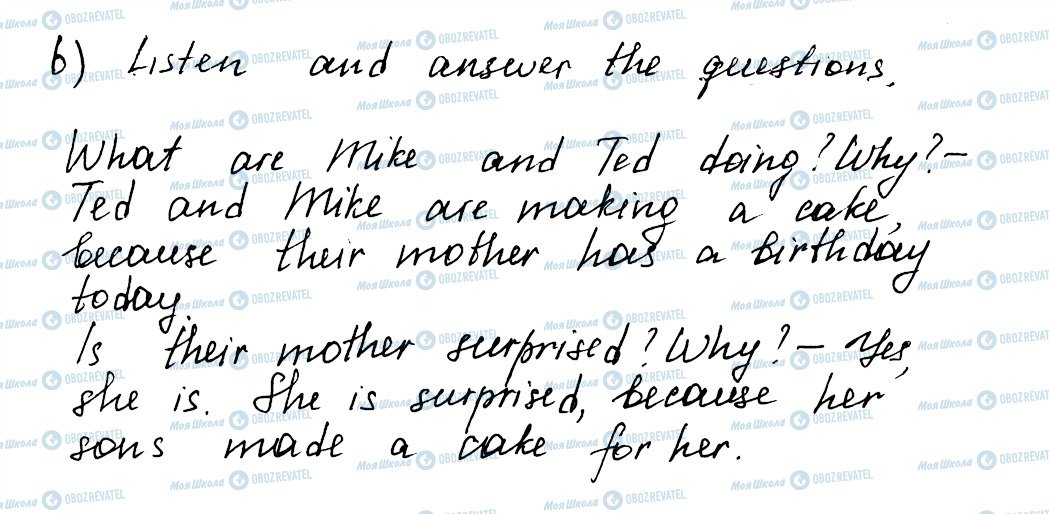 b) Listen and answer the questions.
What are Mike and Ted doing? Why? –
Ted and Mike are making a cake,
because their mother has a birthday
today.
Is their mother surprised? Why? – Yes,
she is. She is surprised, because her
sons made a cake for her.